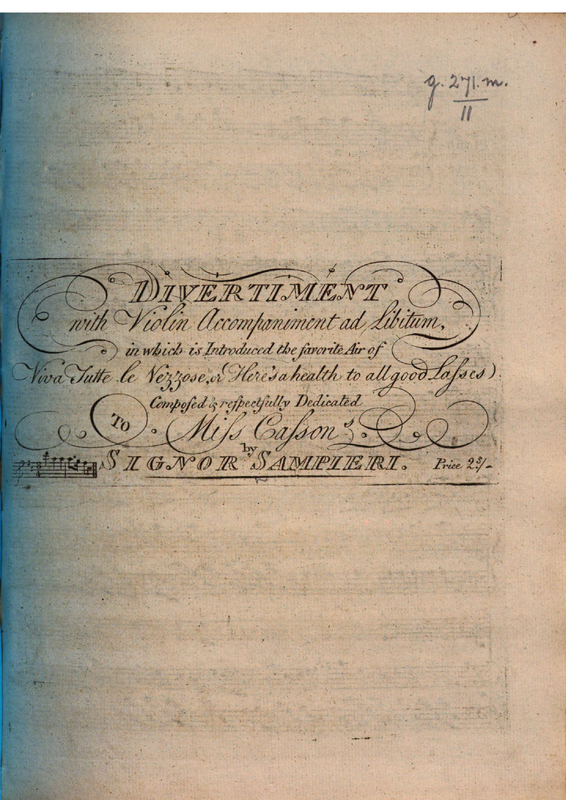 g. 271. m.
11
DIVERTIMENT
with Violin Accompaniment ad Libitum,
in which is Introduced the favorite Air of
Viva Tutte le Vezzose, or Here's a health to all good Lasses)
Composed & respectfully Dedicated
TO Miss Casson
by
SIGNOR SAMPIERI. Price 2s/-